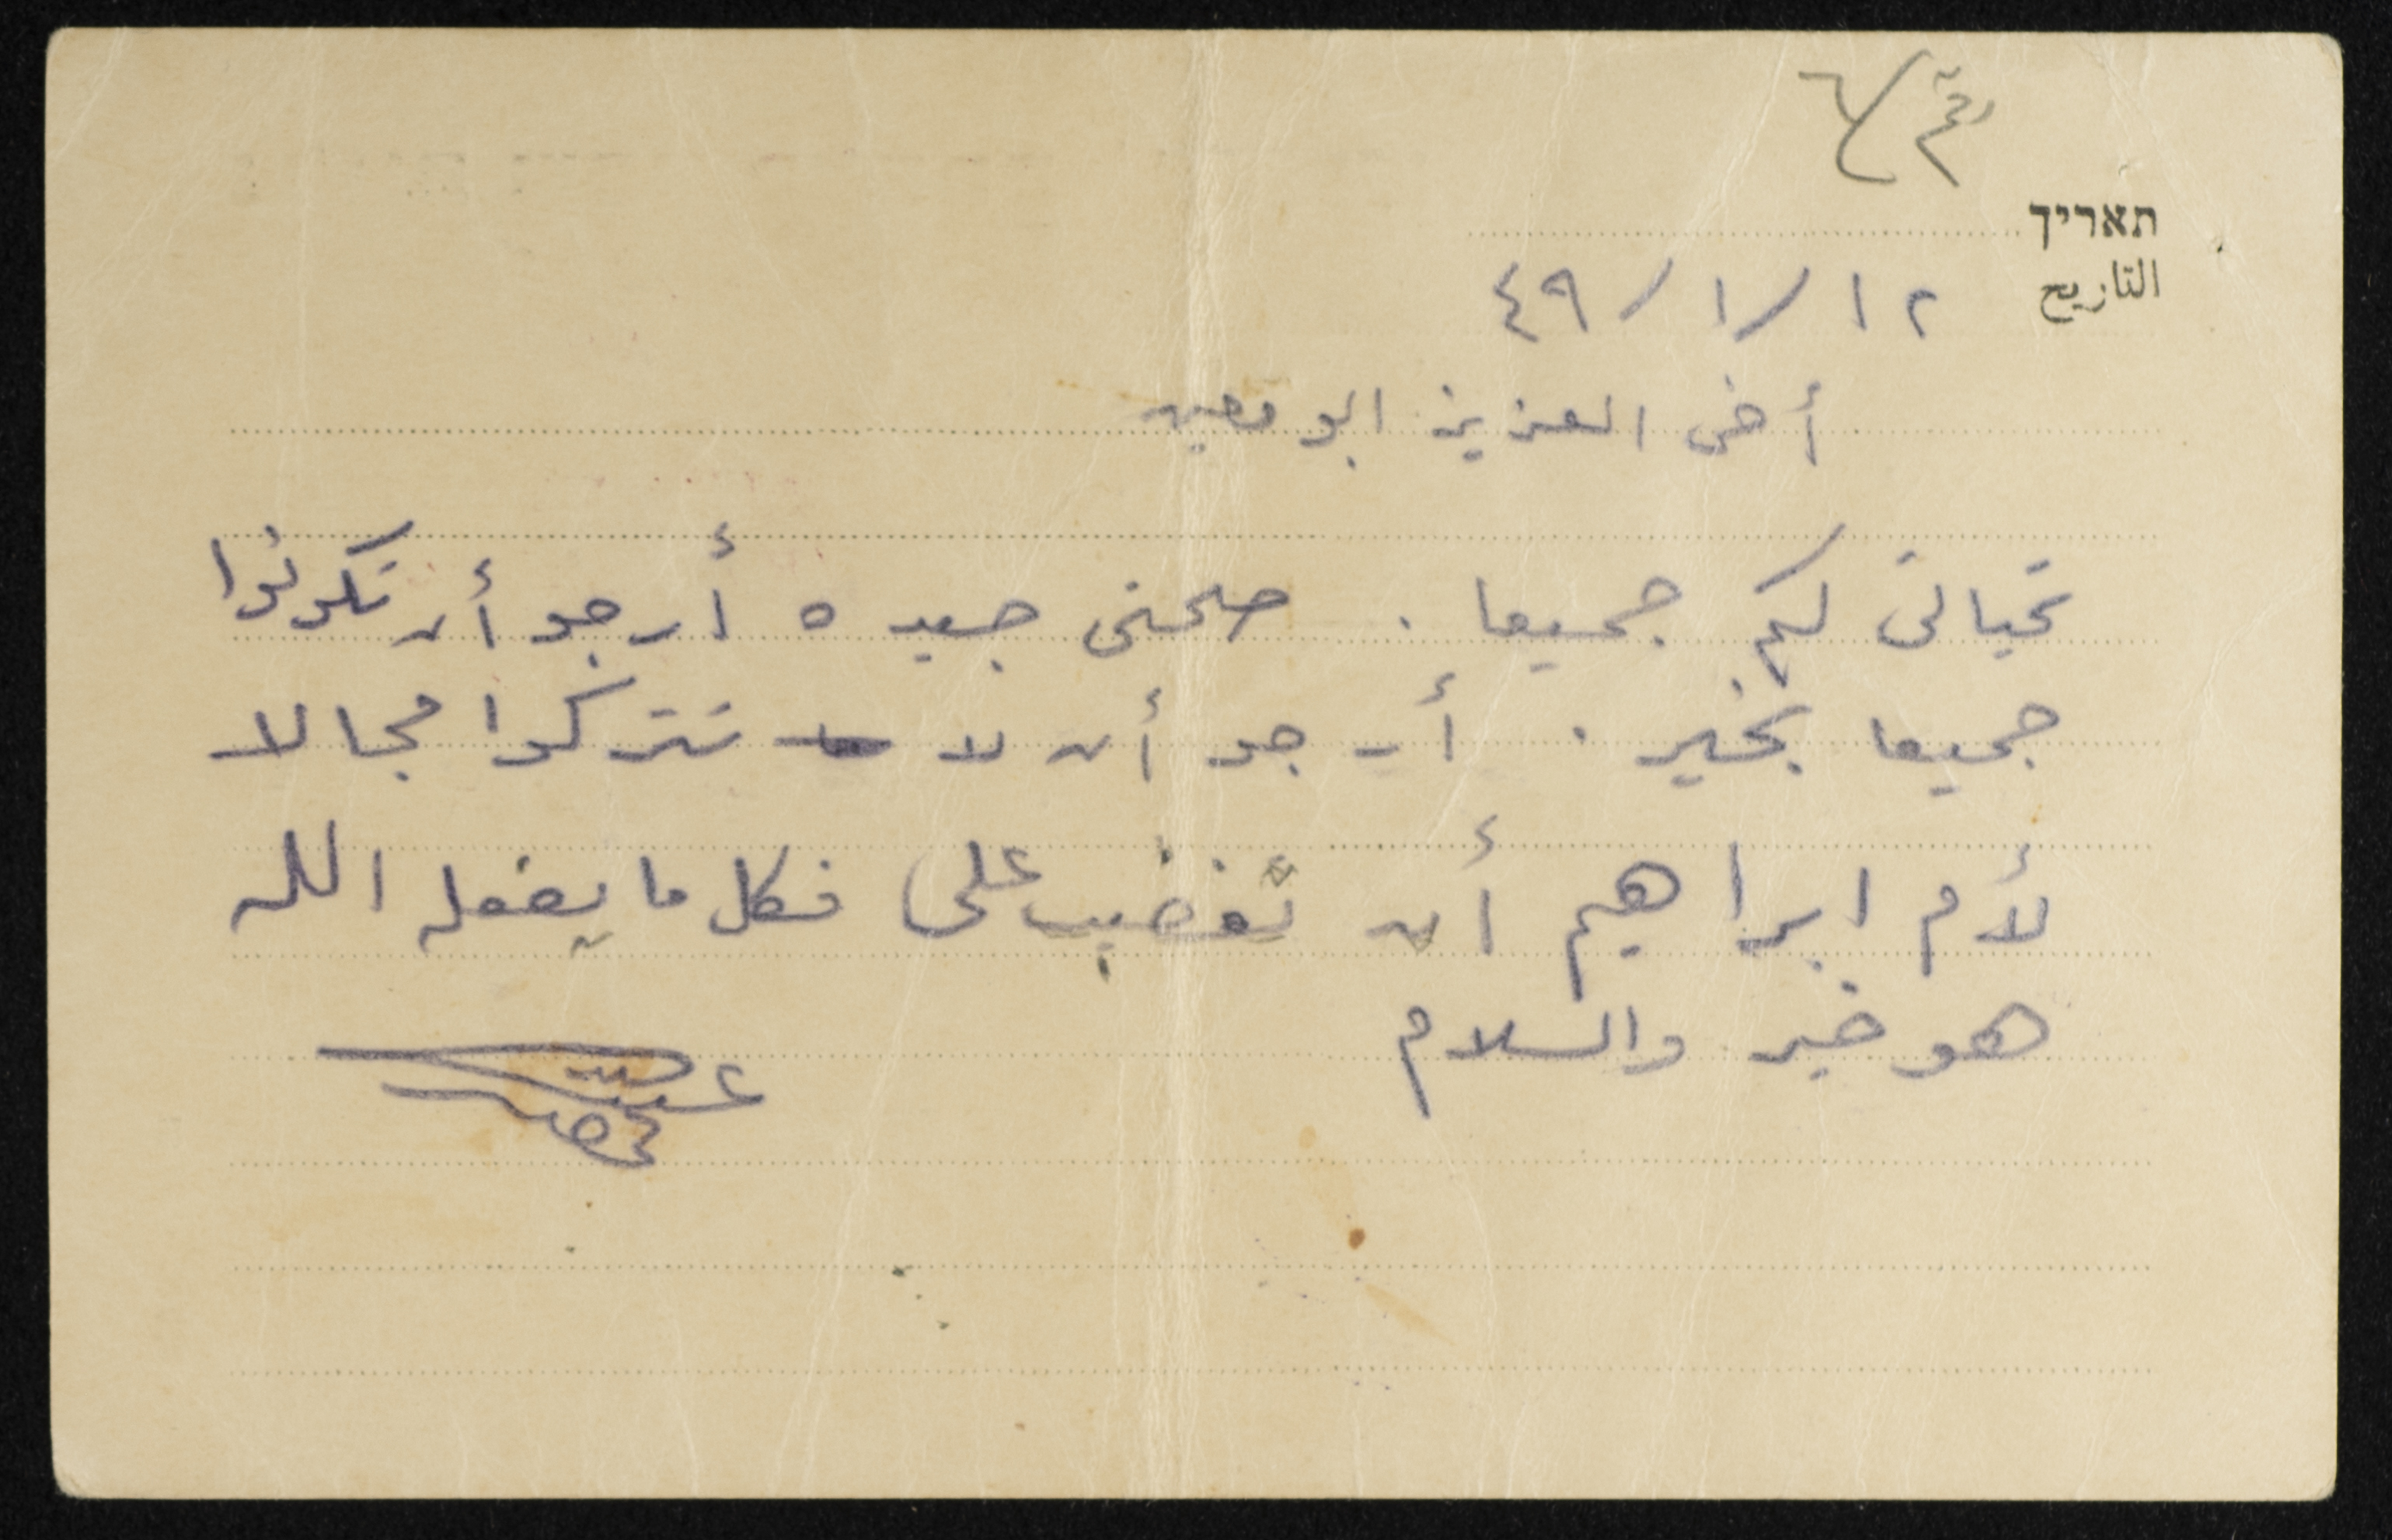 رقم ٦
תאריך
التاريخ ١٢/١/٤٩
أخى العزيز ابو معين
تحياتى لكم جميعا . صحتى جيده أرجو أن تكونوا
جميعا بخير . أرجو أن لا تتركوا مجالا
لأم ابراهيم أن تغضب على فكل ما يفعله الله
هو خير والسلام